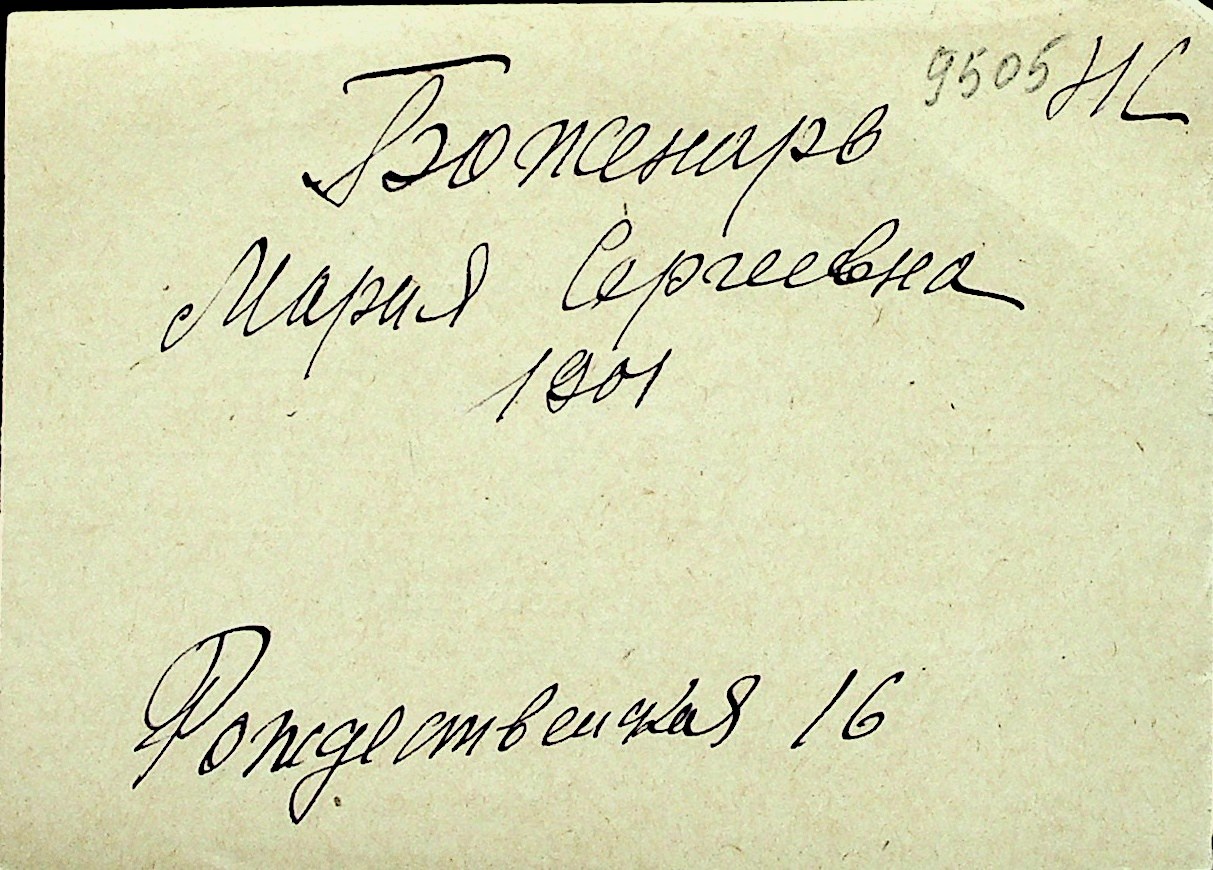 9505 НС
Боженарь
Мария Сергеевна
1901
Рождественская 16